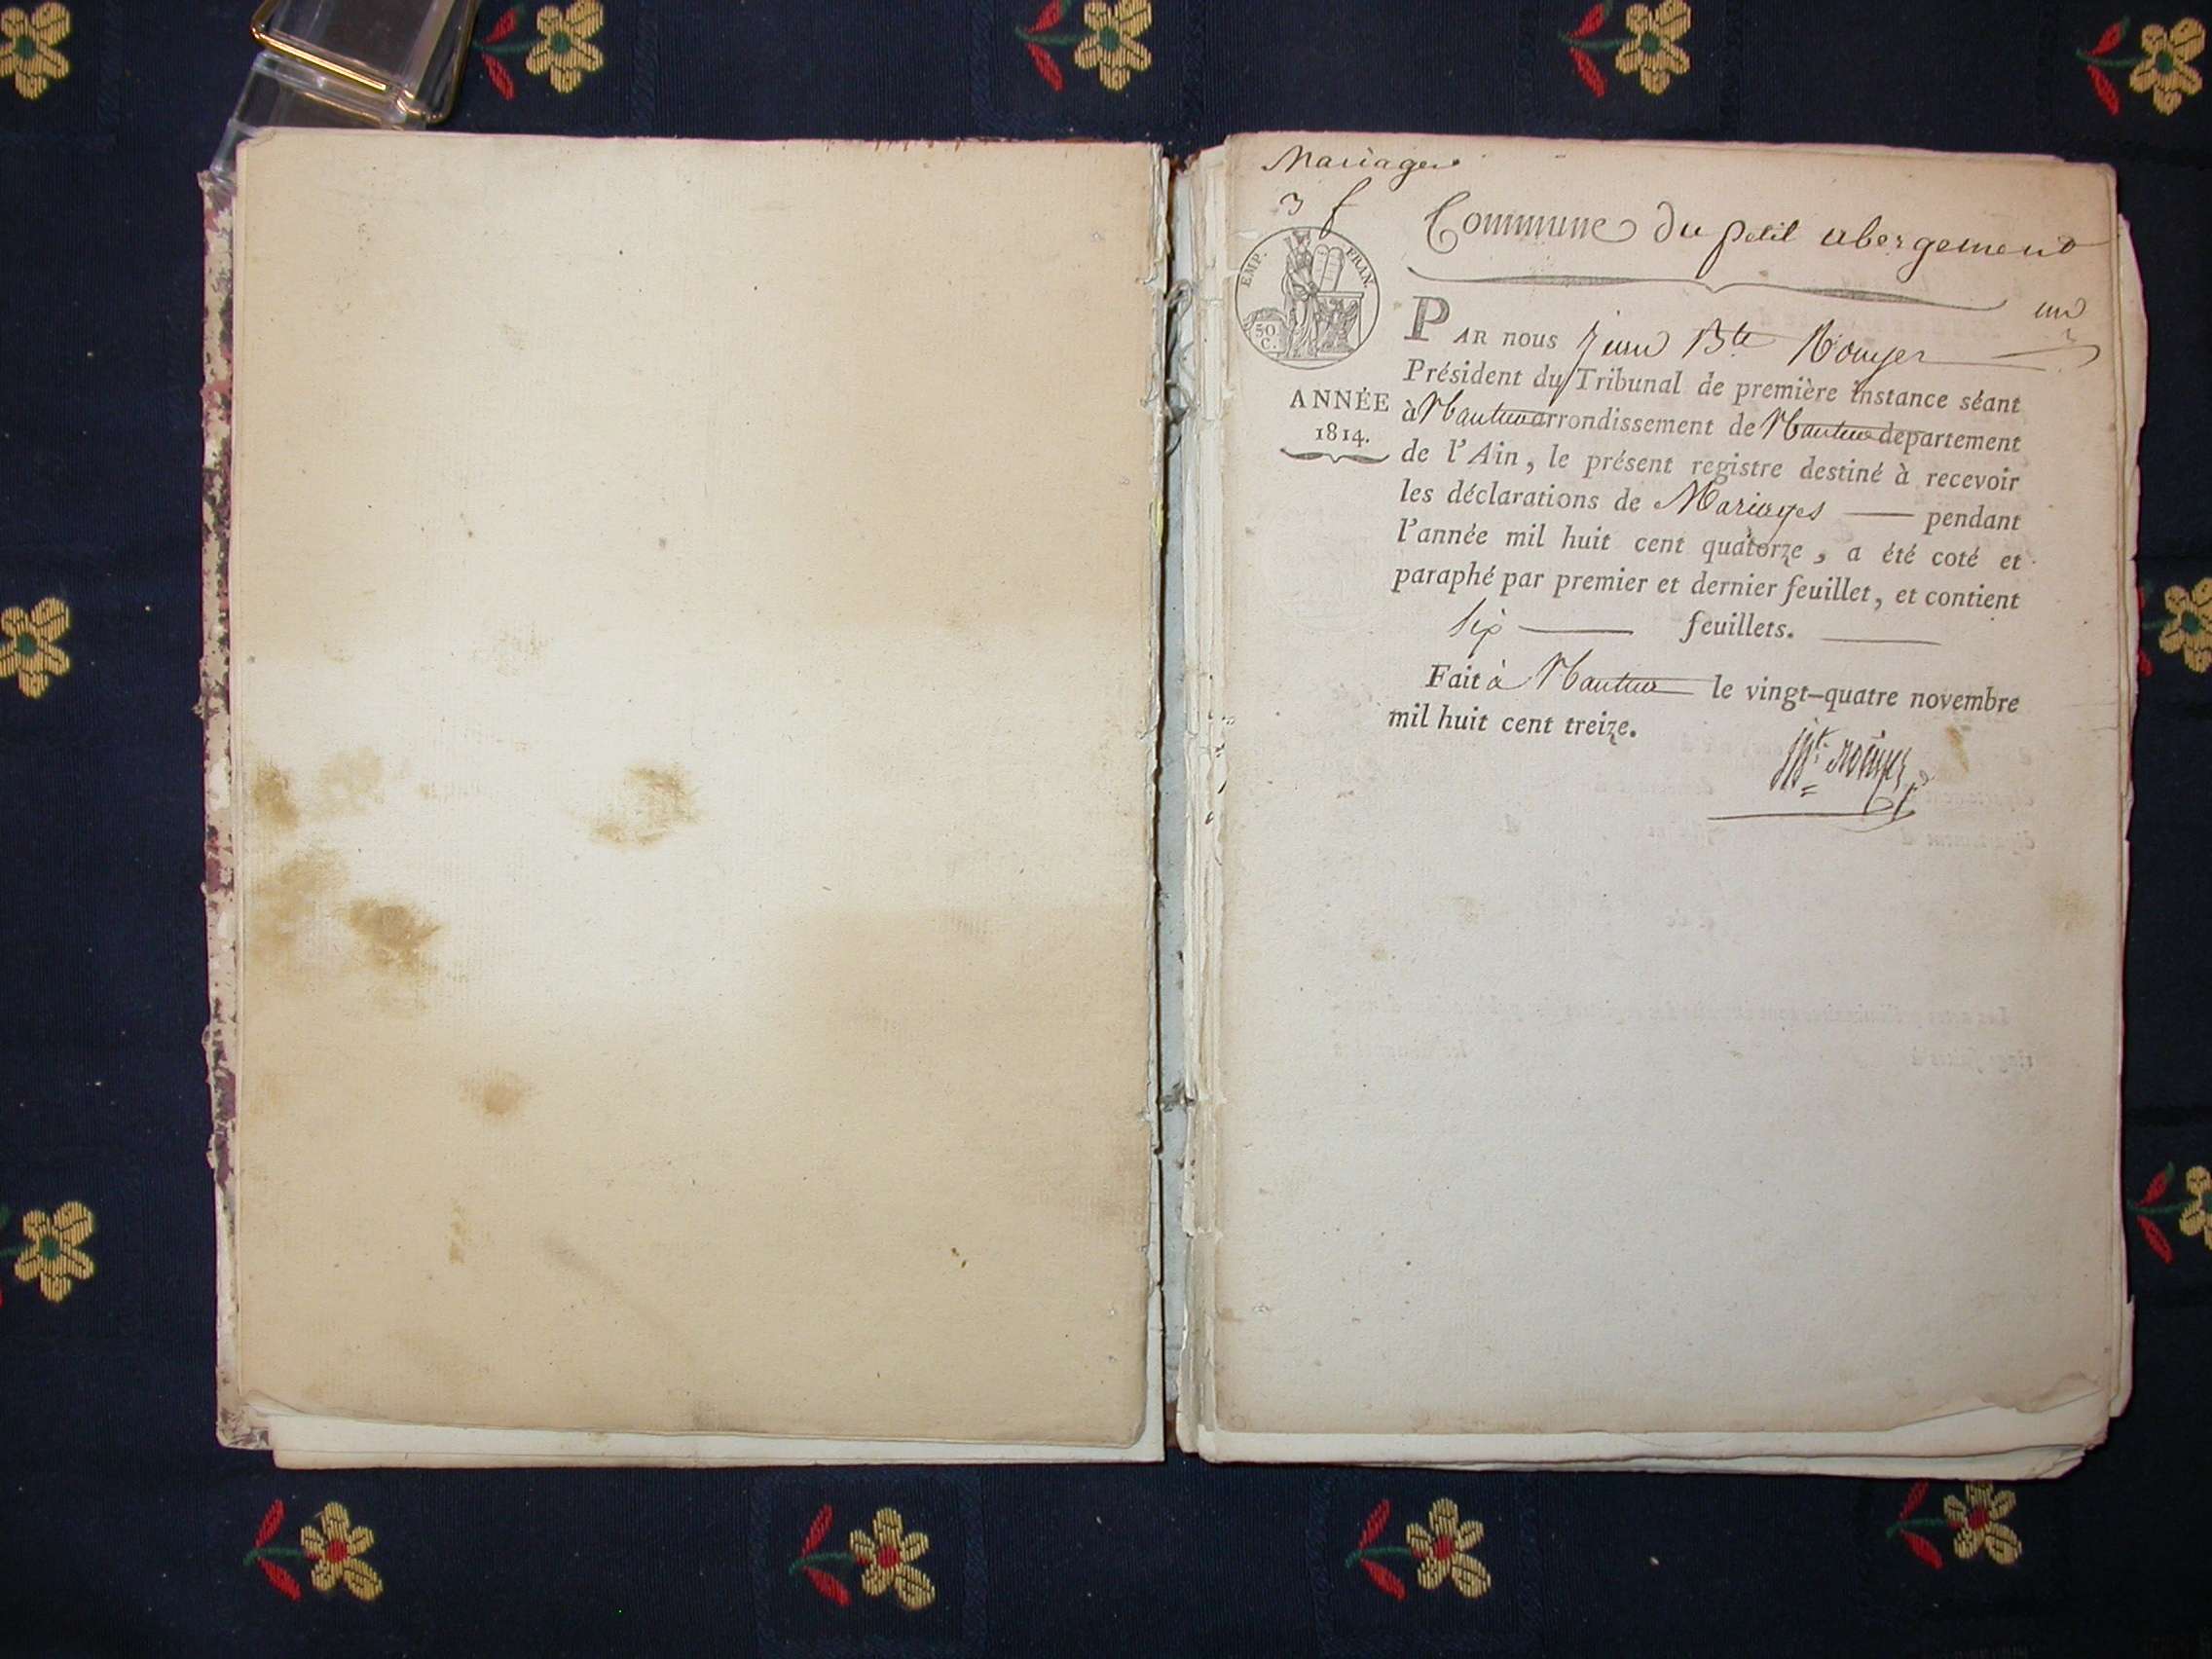 Mariages
3 f
Commune du petit abergement
EMP. FRAN.
50
C.
un
ANNÉE
1814.
PAR nous Jean Bte Rouyer
Président du Tribunal de première instance séant
à Nantua arrondissement de Nantua departement
de l'Ain, le présent registre destiné à recevoir
les déclarations de Mariages — pendant
l'année mil huit cent quatorze, a été coté et
paraphé par premier et dernier feuillet, et contient
six — feuillets. —
Fait à Nantua le vingt-quatre novembre
mil huit cent treize.